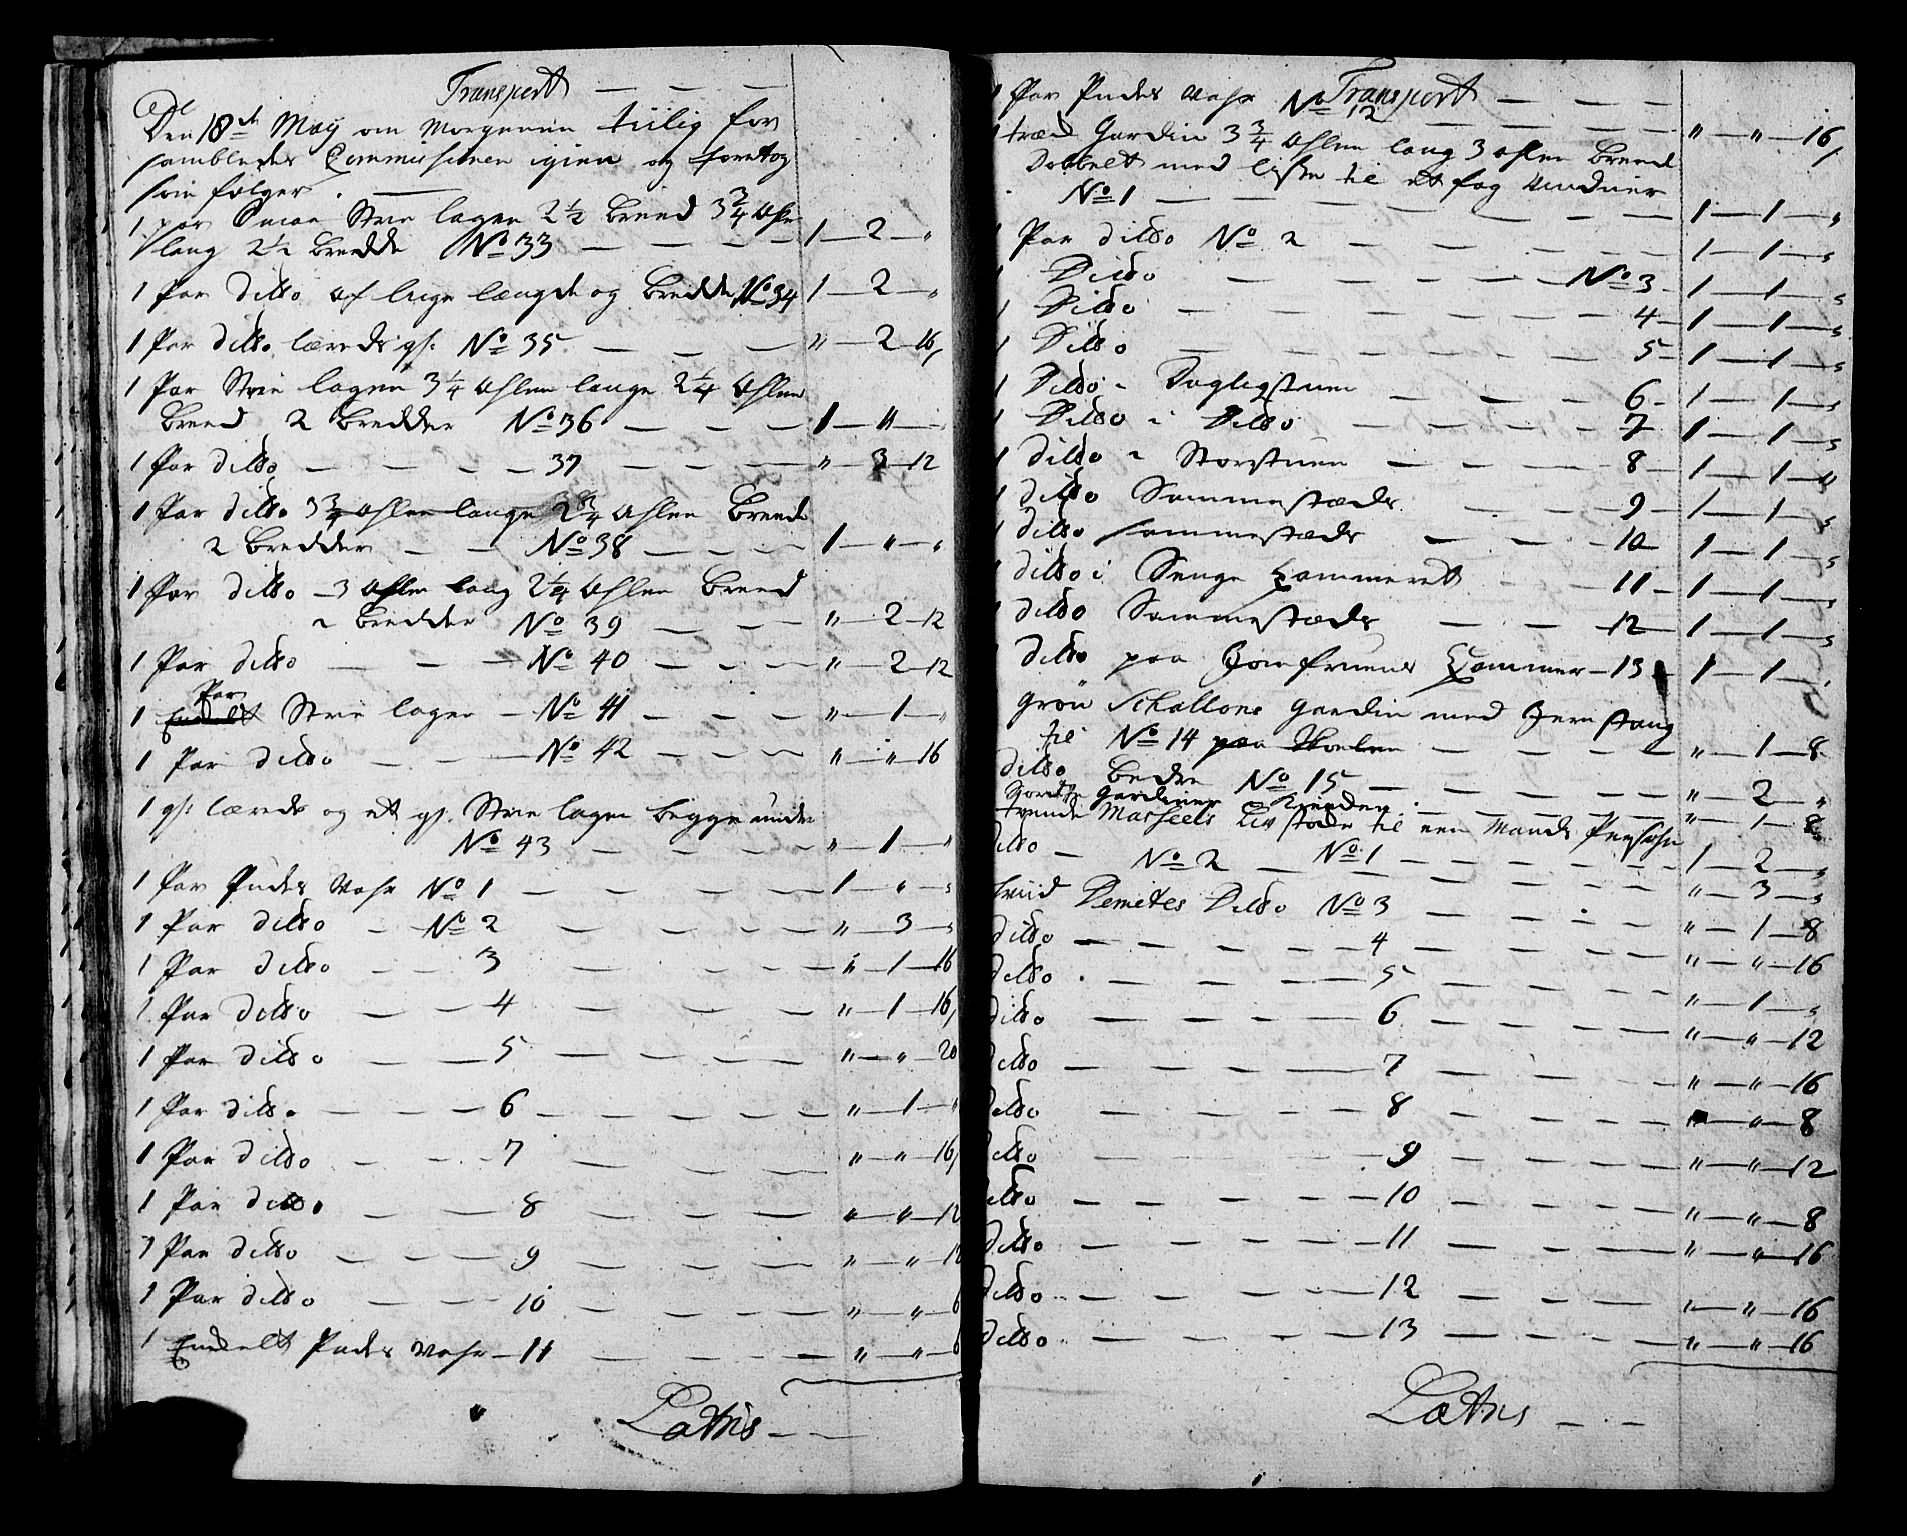 Transport
Den 18de May om Morgenen tiilig for
sambledes Commissionen igien og foretog
som følger.
1 par Strie lagen 2 1/2 breed 3 3/4 Ahlen
lang 2 1/2 bredde No 33 1 — 2 — "
1 Par ditto af lige længde og bredde No 34 1 — 2 — "
1 Par ditto lærreds gl: No 35 " — 2 — 16
1 Par Strie lagen 3 1/4 Ahlen lange 2 1/4 Ahlen
breed 2 bredder No 36 1 — " — "
1 Par ditto 37 " — 3 — 12
1 Par ditto 3 3/4 Ahlen lange 2 3/4 Ahlen breede
2 bredder No 38 1 — " — "
1 Par ditto 3 Ahlen lang 2 1/4 Ahlen breed
2 bredder No 39 " — 2 — 12
1 Par ditto No 40 " 2 — 12
1 Par Strie lagen No 41 " — 1 — "
1 Par ditto No 42 " — " — 16
1 gl: lærreds og et gl. Strie lagen begge under
No 43 " — 1 — "
1 Par Pudes Vahr No 1 1 — " — "
1 Par ditto No 2 " — 3 — "
1 Par ditto 3 " — 1 — 16
1 Par ditto 4 " — 1 — 16
1 Par ditto 5 " — " — 20
1 Par ditto 6 " — 1 — "
1 Par ditto 7 " — " — 16
1 Par ditto 8 " — " — 12
1 Par ditto 9 " — " — 12
1 Par ditto 10 " — "
1 Enkelt Pudes Vahr 11 " — "
Latris
Transport
1 Par Pudes Vahr No 12 " — " — 16
Gardin 3 3/4 Ahlen lang 3 Ahlen breed
Dobbelt med liste til et fag Vinduer
No 1 1 — 1 — "
1 Par ditto No 2 1 — 1 — "
1 Ditto No 3 1 — 1 — "
1 Ditto 4 1 — 1 — "
1 Ditto 5 1 — 1 — "
1 Ditto i Dagligstuen 6 1 — 1 — "
1 Ditto i Ditto 7 1 — 1 — "
1 ditto i Storstuen 8 1 — 1 — "
1 ditto Sammestæds 9 1 — 1 — "
1 ditto sammestæds 10 1 — 1 — "
1 ditto i Senge Kammeret 11 1 — 1 — "
1 ditto Sammestæds 12 1 — 1 — "
ditto paa Jomfruens Kammer 13 1 — 1 — "
grøn Schallons gardin med Jernstang
til No 14 paa " — 1 — 8
ditto bedre No 15 " 2 — "
gardiner " — 1 — 8
til een Mands Persohn
No 1 1 — 2 — "
ditto No 2 " — 3 — "
hviid Demetes Ditto No 3 " — 1 — 8
ditto 4 " — " — 16
ditto 5 " — 1 — "
ditto 6 " — " — 12
ditto 7 " — " — 16
ditto 8 " — 8
ditto 9 " — " — 12
ditto 10 " — " — 8
ditto 11 " — " — 16
ditto 12 " — " — 16
ditto 13 " — " — 16
Latris